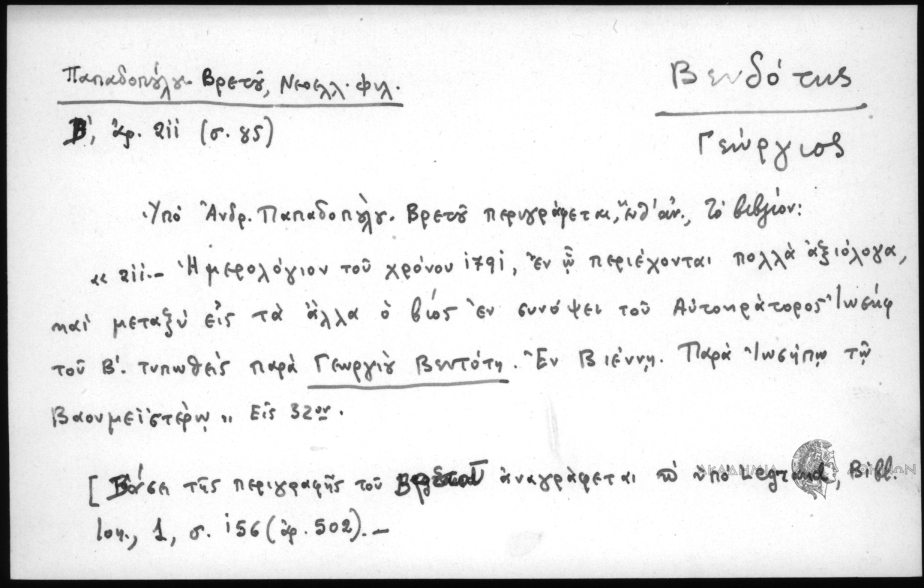 Παπαδοπούλου Βρετοῦ, Νεοελλ. φιλ.
Βενδότης
Β', ἀρ. 211 (σ. 85)
Γεώργιος
Ὑπὸ Ἀνδρ. Παπαδοπούλου Βρετοῦ περιγράφεται, ἔνθ' ἀν., τὸ βιβλίον:
« 211.- Ἡμερολόγιον τοῦ χρόνου 1791, ἐν ᾧ περιέχονται πολλὰ ἀξιόλογα,
καὶ μεταξὺ εἰς τὰ ἄλλα ὁ βίος ἐν συνόψει τοῦ Αὐτοκράτορος Ἰωσὴφ
τοῦ Β'. τυπωθεὶς παρὰ Γεωργίου Βεντότη. Ἐν Βιέννῃ. Παρὰ Ἰωσήπῳ τῷ
Βαουμεϊστέρῳ „ Εἰς 32ον.
[ Βάσει τῆς περιγραφῆς τοῦ Βρετοῦ ἀναγράφεται ὑπὸ Legrand, Bibl.
Ion., 1, σ. 156 (ἀρ. 502). -